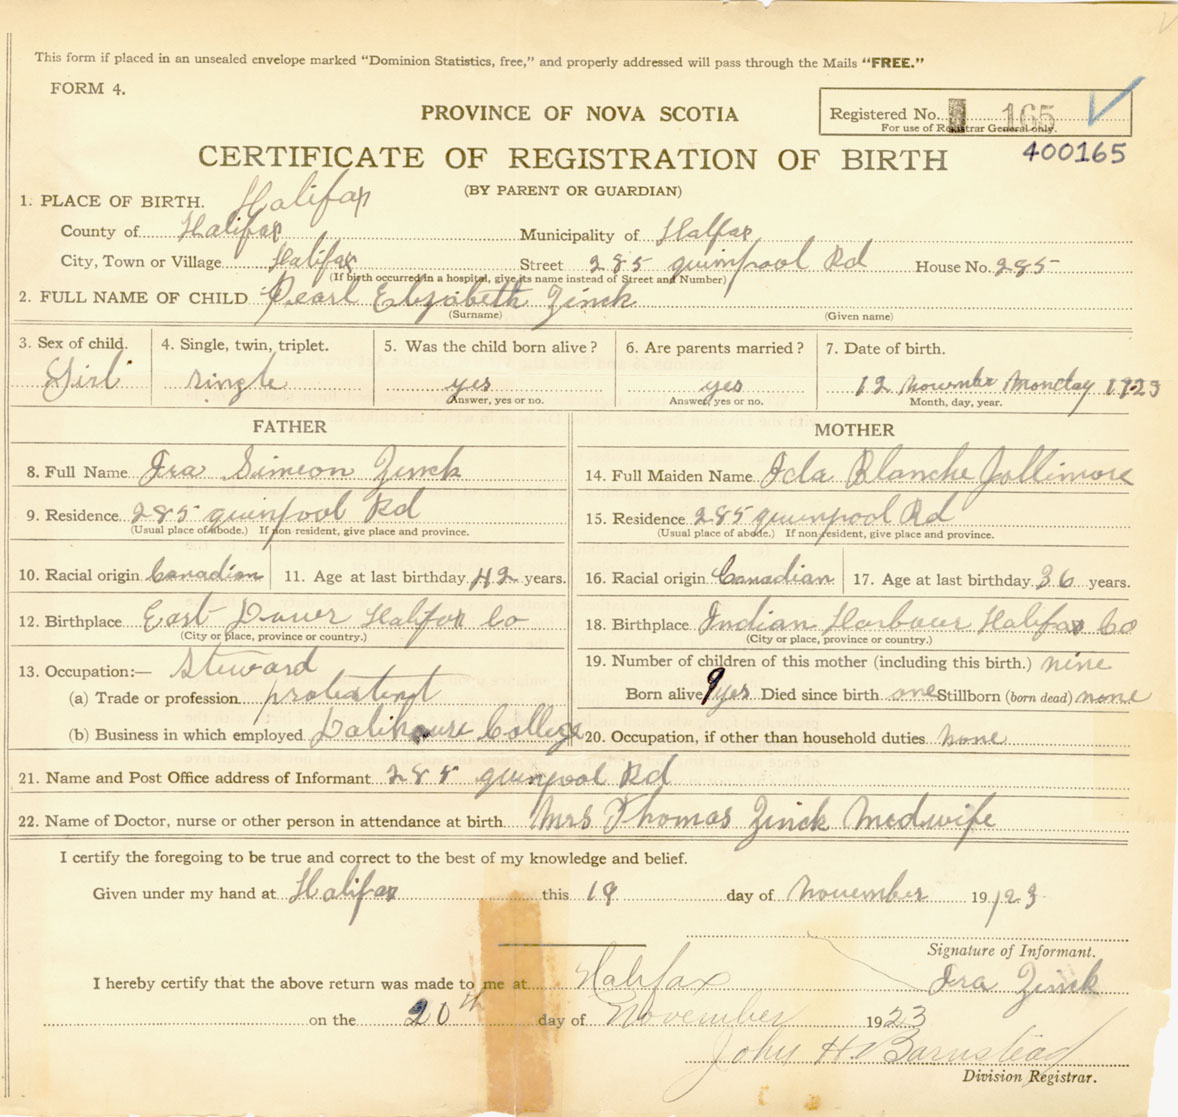 This form if placed in an unsealed envelope marked "Dominion Statistics, free," and properly addressed will pass through the Mails "FREE."
FORM 4.
PROVINCE OF NOVA SCOTIA
Registered No. 165
For use of Registrar General only.
400165
CERTIFICATE OF REGISTRATION OF BIRTH
(BY PARENT OR GUARDIAN)
1. PLACE OF BIRTH. Halifax
County of Halifax Municipality of Halfax
City, Town or Village Halifax Street 285 quinpool Rd House No. 285
(If birth occurred in a hospital, give its name instead of Street and Number)
2. FULL NAME OF CHILD Pearl Elizabeth Zinck
(Surname) (Given name)
3. Sex of child. 4. Single, twin, triplet. 5. Was the child born alive? 6. Are parents married? 7. Date of birth.
Girl single yes yes 12 November Monday 1923
Answer, yes or no. Answer, yes or no. Month, day, year.
FATHER MOTHER
8. Full Name Ira Simeon Zinck 14. Full Maiden Name Ida Blanche Jollimore
9. Residence 285 quinpool Rd 15. Residence 285 quinpool Rd
(Usual place of abode.) If non resident, give place and province. (Usual place of abode.) If non resident, give place and province.
10. Racial origin Canadian 11. Age at last birthday 42 years. 16. Racial origin Canadian 17. Age at last birthday 36 years.
12. Birthplace East Dover Halifax Co 18. Birthplace Indian Harbour Halifax Co
(City or place, province or country.) (City or place, province or country.)
13. Occupation:— Steward 19. Number of children of this mother (including this birth.) nine
(a) Trade or profession protestent Born alive 9 yes Died since birth one Stillborn (born dead) none
(b) Business in which employed Dalhousie College 20. Occupation, if other than household duties none
21. Name and Post Office address of Informant 285 quinpool Rd
22. Name of Doctor, nurse or other person in attendance at birth Mrs Thomas Zinck Medwife
I certify the foregoing to be true and correct to the best of my knowledge and belief.
Given under my hand at Halifax this 19 day of November 1923
Signature of Informant.
I hereby certify that the above return was made to me at Halifax Ira Zinck
on the 20th day of November 1923
John H. Barnstead
Division Registrar.